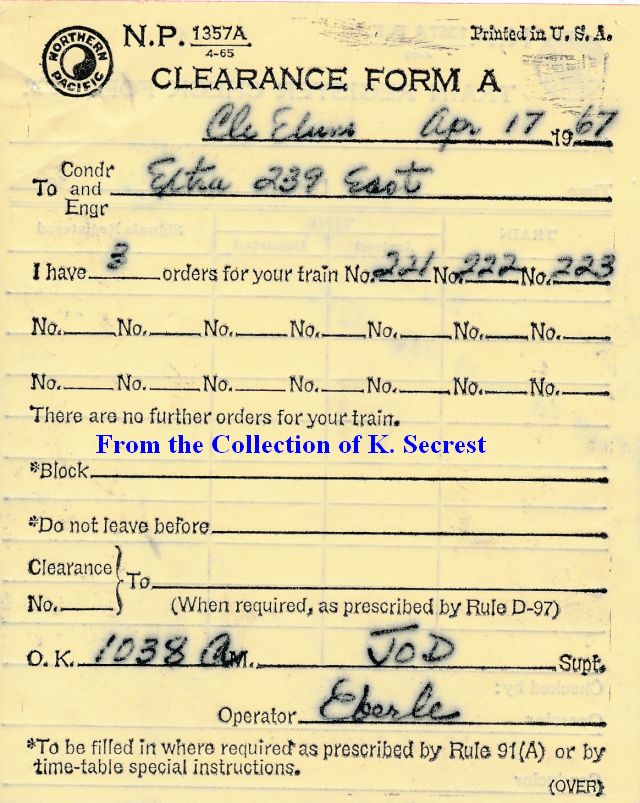 NORTHERN PACIFIC
N.P. 1357A
4-65
Printed in U. S. A.
CLEARANCE FORM A
Cle Elum Apr 17 1967
To Condr and Engr Extra 239 East
I have 3 orders for your train No. 221 No. 222 No. 223
No. No. No. No. No. No. No.
No. No. No. No. No. No. No.
There are no further orders for your train.
From the Collection of K. Secrest
*Block
*Do not leave before
Clearance No. To
(When required, as prescribed by Rule D-97)
O. K. 1038 A M. JOD Supt.
Operator Eberle
*To be filled in where required as prescribed by Rule 91(A) or by
time-table special instructions.
(OVER)